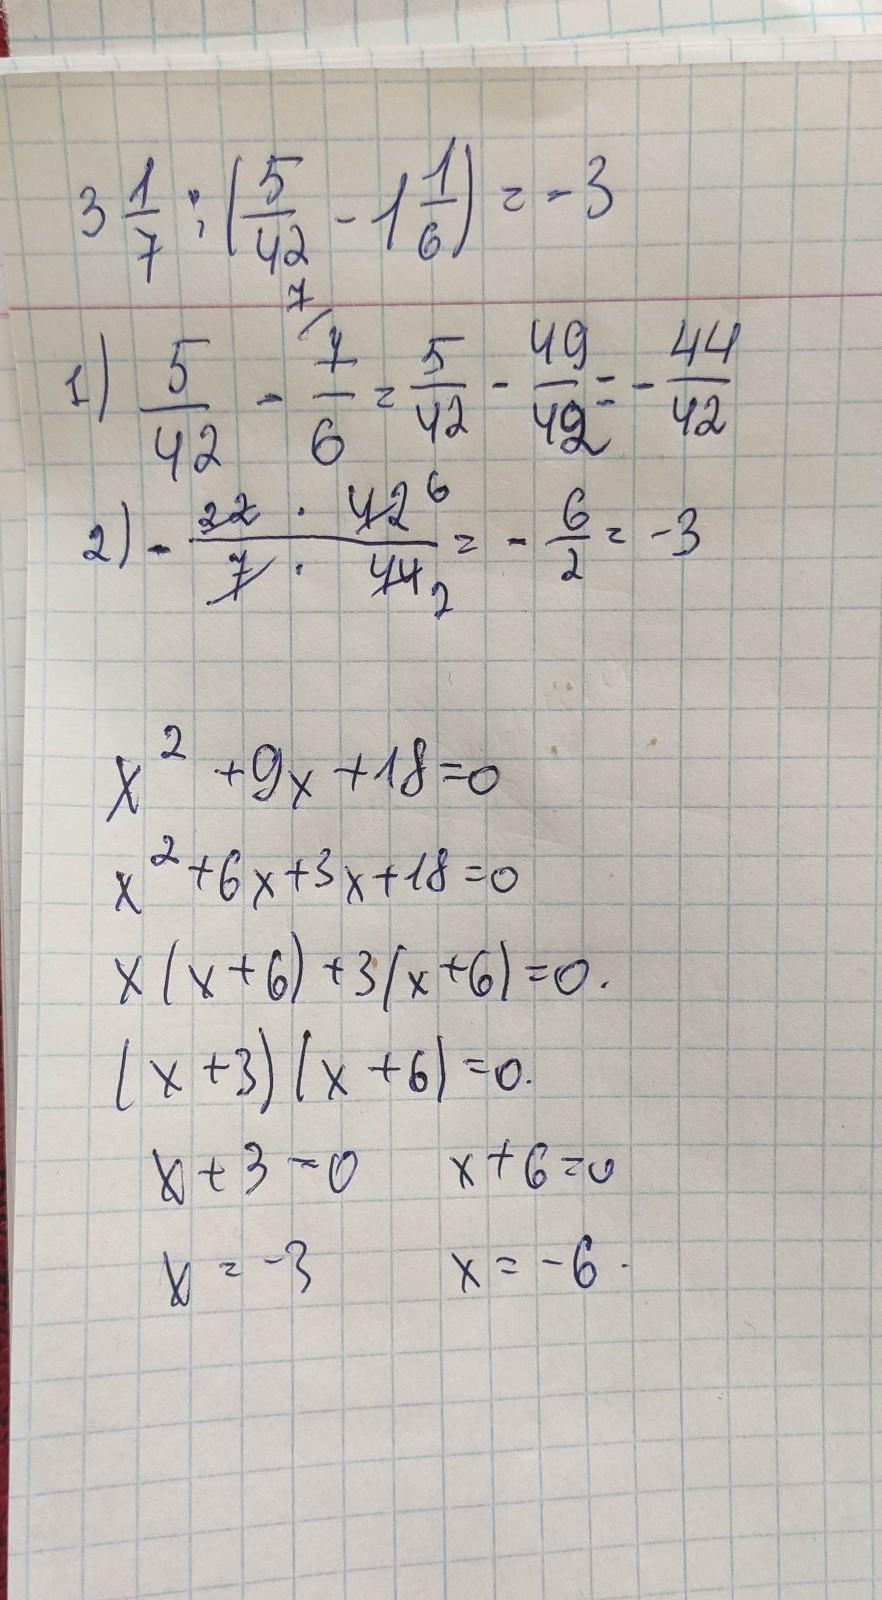 3 1/7 : (5/42 - 1 1/6) = -3
1) 5/42 - 7/6 (7/) = 5/42 - 49/42 = - 44/42
2) - 22 · 42 6 / 7 · 44 2 = - 6/2 = -3
x² + 9x + 18 = 0
x² + 6x + 3x + 18 = 0
x(x + 6) + 3(x + 6) = 0.
(x + 3)(x + 6) = 0.
x + 3 = 0 x + 6 = 0
x = -3 x = -6.